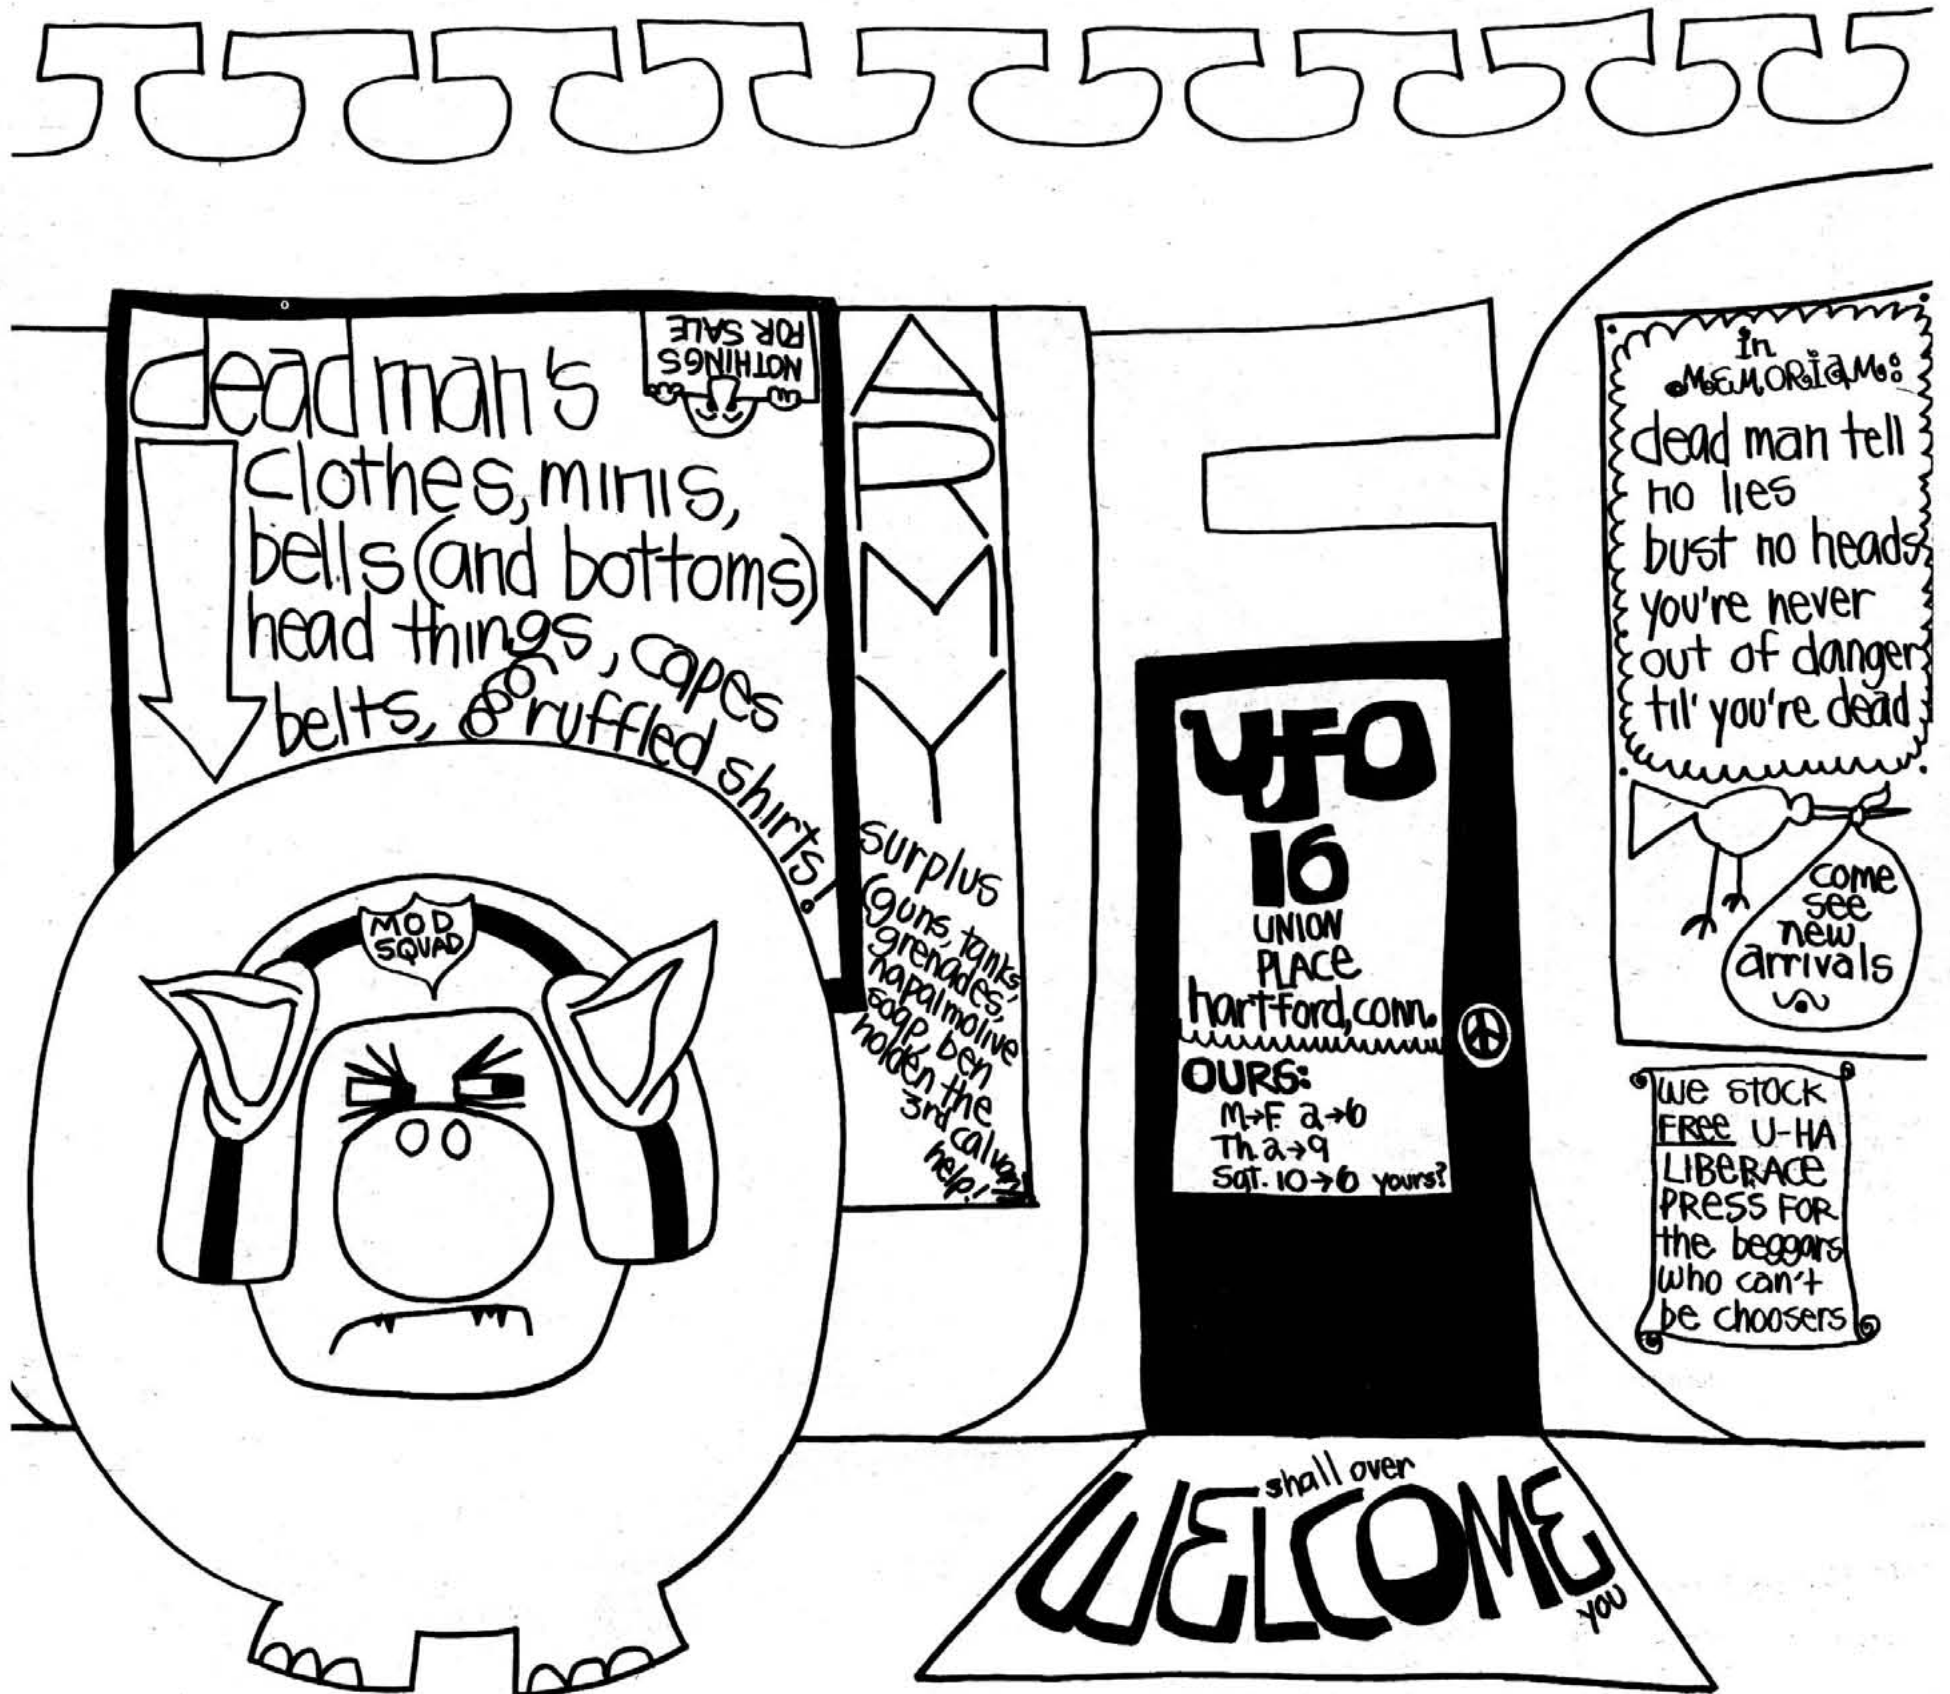 deadman's
clothes, minis,
bells (and bottoms)
head things, capes
belts, ruffled shirts!
NOTHINGS
FOR SALE
ARMY
surplus
(guns, tanks,
grenades,
napalmolive
soap, ben
holden the
3rd calvary
help!
MOD
SQUAD
UFO
16
UNION
PLACE
hartford, conn.
OURS:
M→F. 2→6
Th. 2→9
Sat. 10→6 yours?
in
MEMORIAM:
dead man tell
no lies
bust no heads
you're never
out of danger
til' you're dead
come
see
new
arrivals
We STOCK
FREE U-HA
LIBERACE
PRESS FOR
the beggars
who can't
be choosers
shall over
WELCOME
YOU